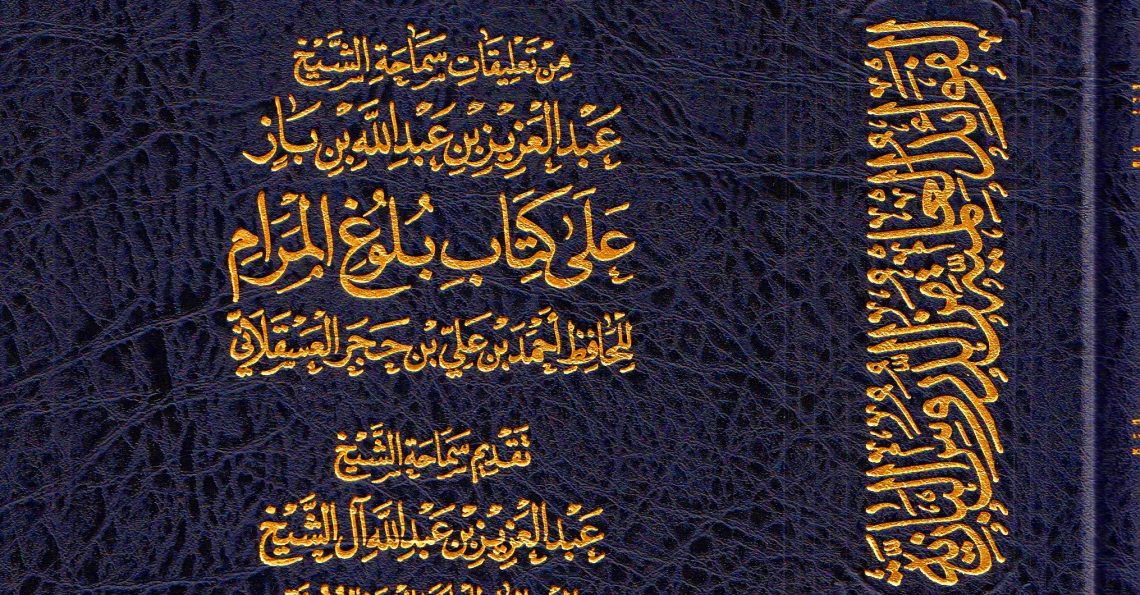 الفَوَائِدُ العِلْمِيَّةُ مِنَ الدُّرُوسِ البَازِيَّةِ
مِنْ تَعْلِيقَاتِ سَمَاحَةِ الشَّيْخِ
عَبْدِ العَزِيزِ بْنِ عَبْدِ اللَّهِ بْنِ بَازٍ
عَلَى كِتَابِ بُلُوغِ المَرَامِ
لِلْحَافِظِ أَحْمَدَ بْنِ عَلِيِّ بْنِ حَجَرٍ العَسْقَلَانِيِّ
تَقْدِيمُ سَمَاحَةِ الشَّيْخِ
عَبْدِ العَزِيزِ بْنِ عَبْدِ اللَّهِ آلِ الشَّيْخِ